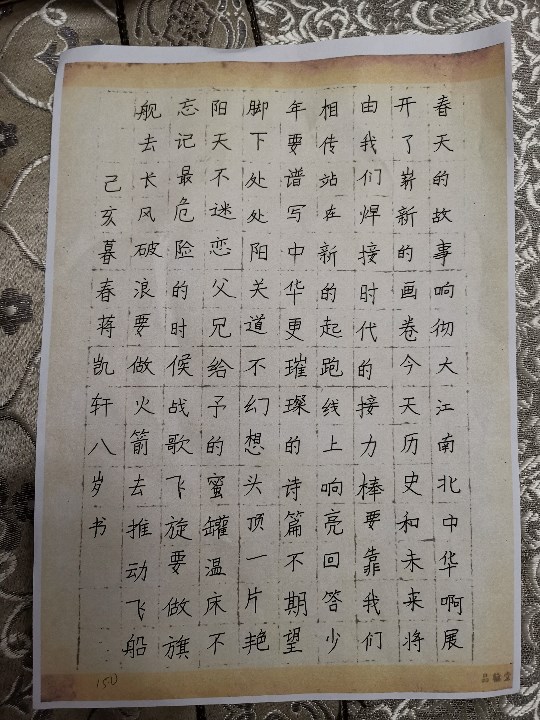 春天的故事响彻大江南北中华啊展
开了崭新的画卷今天历史和未来将
由我们焊接时代的接力棒要靠我们
相传站在新的起跑线上响亮回答少
年要谱写中华更璀璨的诗篇不期望
脚下处处阳关道不幻想头顶一片艳
阳天不迷恋父兄给予的蜜罐温床不
忘记最危险的时候战歌飞旋要做旗
舰去长风破浪要做火箭去推动飞船
己亥暮春蒋凯轩八岁书
150